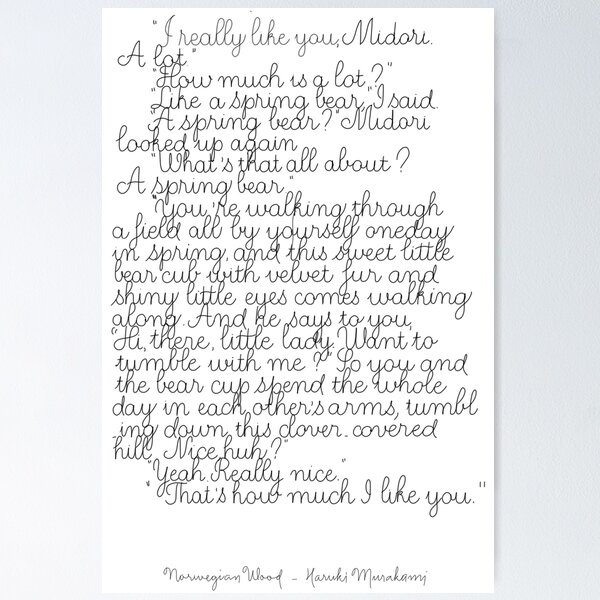 "I really like you, Midori.
A lot."
"How much is a lot?"
"Like a spring bear," I said.
"A spring bear?" Midori
looked up again
"What's that all about?
A spring bear"
"You're walking through
a field all by yourself oneday
in spring, and this sweet little
bear cub with velvet fur and
shiny little eyes comes walking
along. And he says to you,
"Hi, there, little lady. Want to
tumble with me?" So you and
the bear cup spend the whole
day in each other's arms, tumbl
ing down this clover-covered
hill. Nice huh?"
"Yeah. Really nice."
"That's how much I like you."
Norwegian Wood - Haruki Murakami